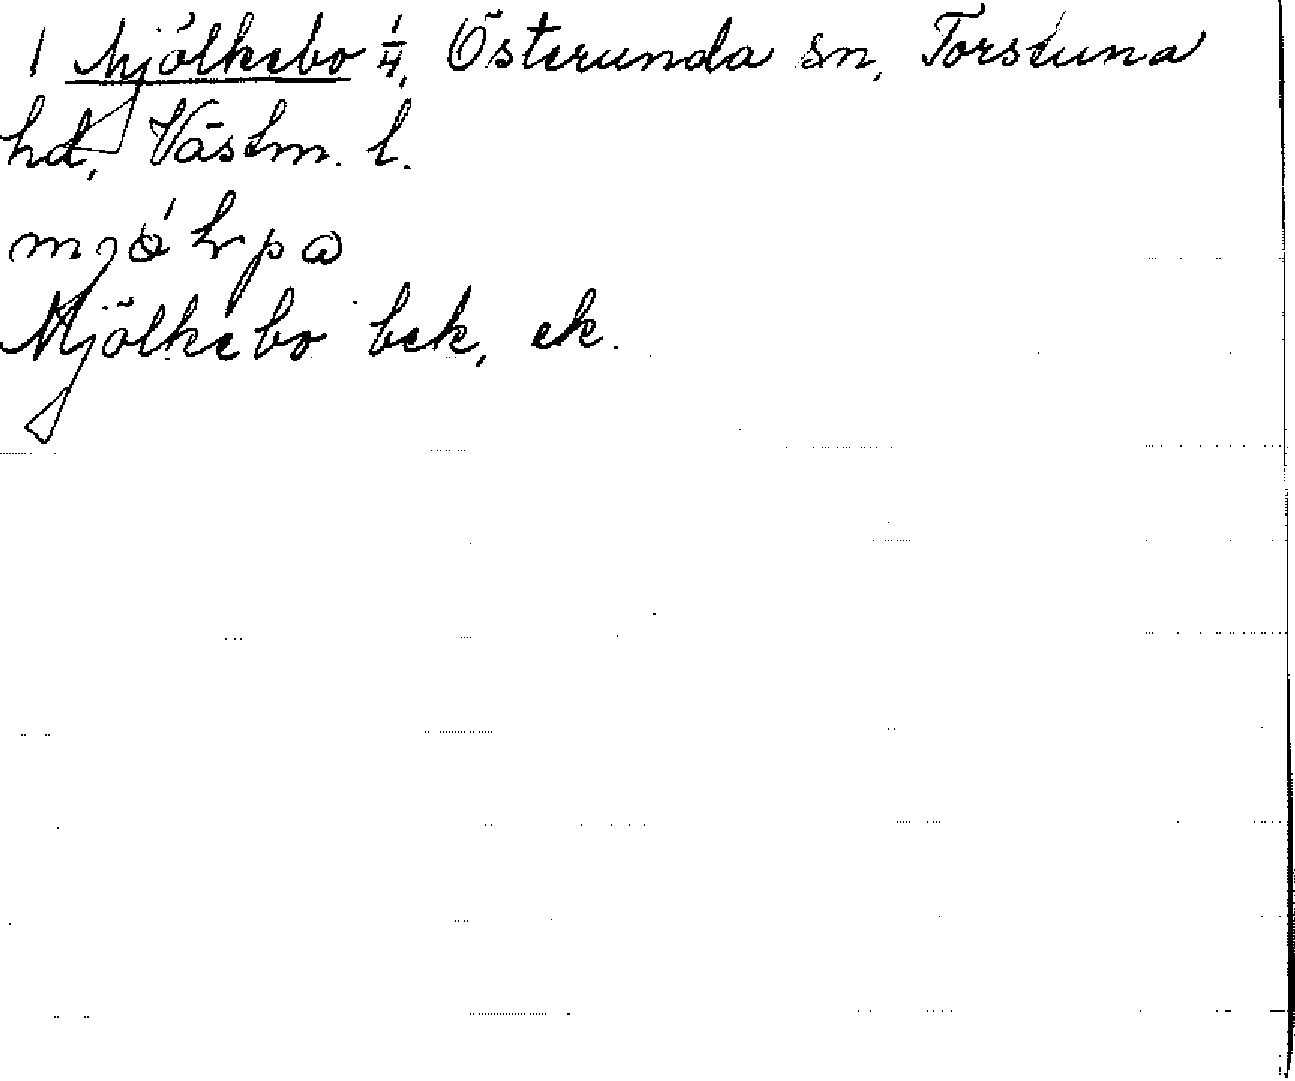 1 Mjölkebo 1/4, Österunda sn, Torstuna
hd, Västm. l.
Mjölkebo bek, ek.